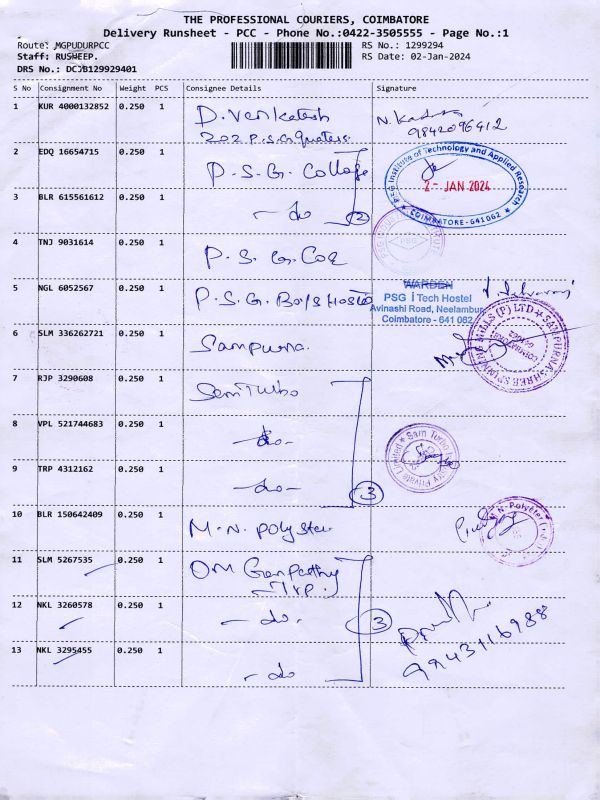 THE PROFESSIONAL COURIERS, COIMBATORE
Delivery Runsheet - PCC - Phone No.:0422-3505555 - Page No.:1
Route: MGPUDURPCC
RS No.: 1299294
Staff: RUSHEEP.
RS Date: 02-Jan-2024
DRS No.: DCJB129929401
S No Consignment No Weight PCS Consignee Details Signature
1 KUR 4000132852 0.250 1 D. Venkatesh
202 P.S.G quaters
9842096412
2 EDQ 16654715 0.250 1 P.S.G. College
PSG Institute of Technology and Applied Research
2- JAN 2024
COIMBATORE-641062
3 BLR 615561612 0.250 1 - do 2
PSG
4 TNJ 9031614 0.250 1 P.S.G. Coe
5 NGL 6052567 0.250 1 P.S.G. Boys Hostel
WARDEN
PSG i Tech Hostel
Avinashi Road, Neelambur,
Coimbatore - 641 062
6 SLM 336262721 0.250 1 Sampurna
SAMPURNA SHREE SPINNING MILLS (P) LTD
7 RJP 3290608 0.250 1 Sam Turbo
8 VPL 521744683 0.250 1 - do -
Sam Turbo Private Limited
9 TRP 4312162 0.250 1 - do - 3
10 BLR 150642409 0.250 1 M.N. Polyster
11 SLM 5267535 0.250 1 OM Ganpathy
12 NKL 3260578 0.250 1 - do. 3
9943116988
13 NKL 3295455 0.250 1 - do